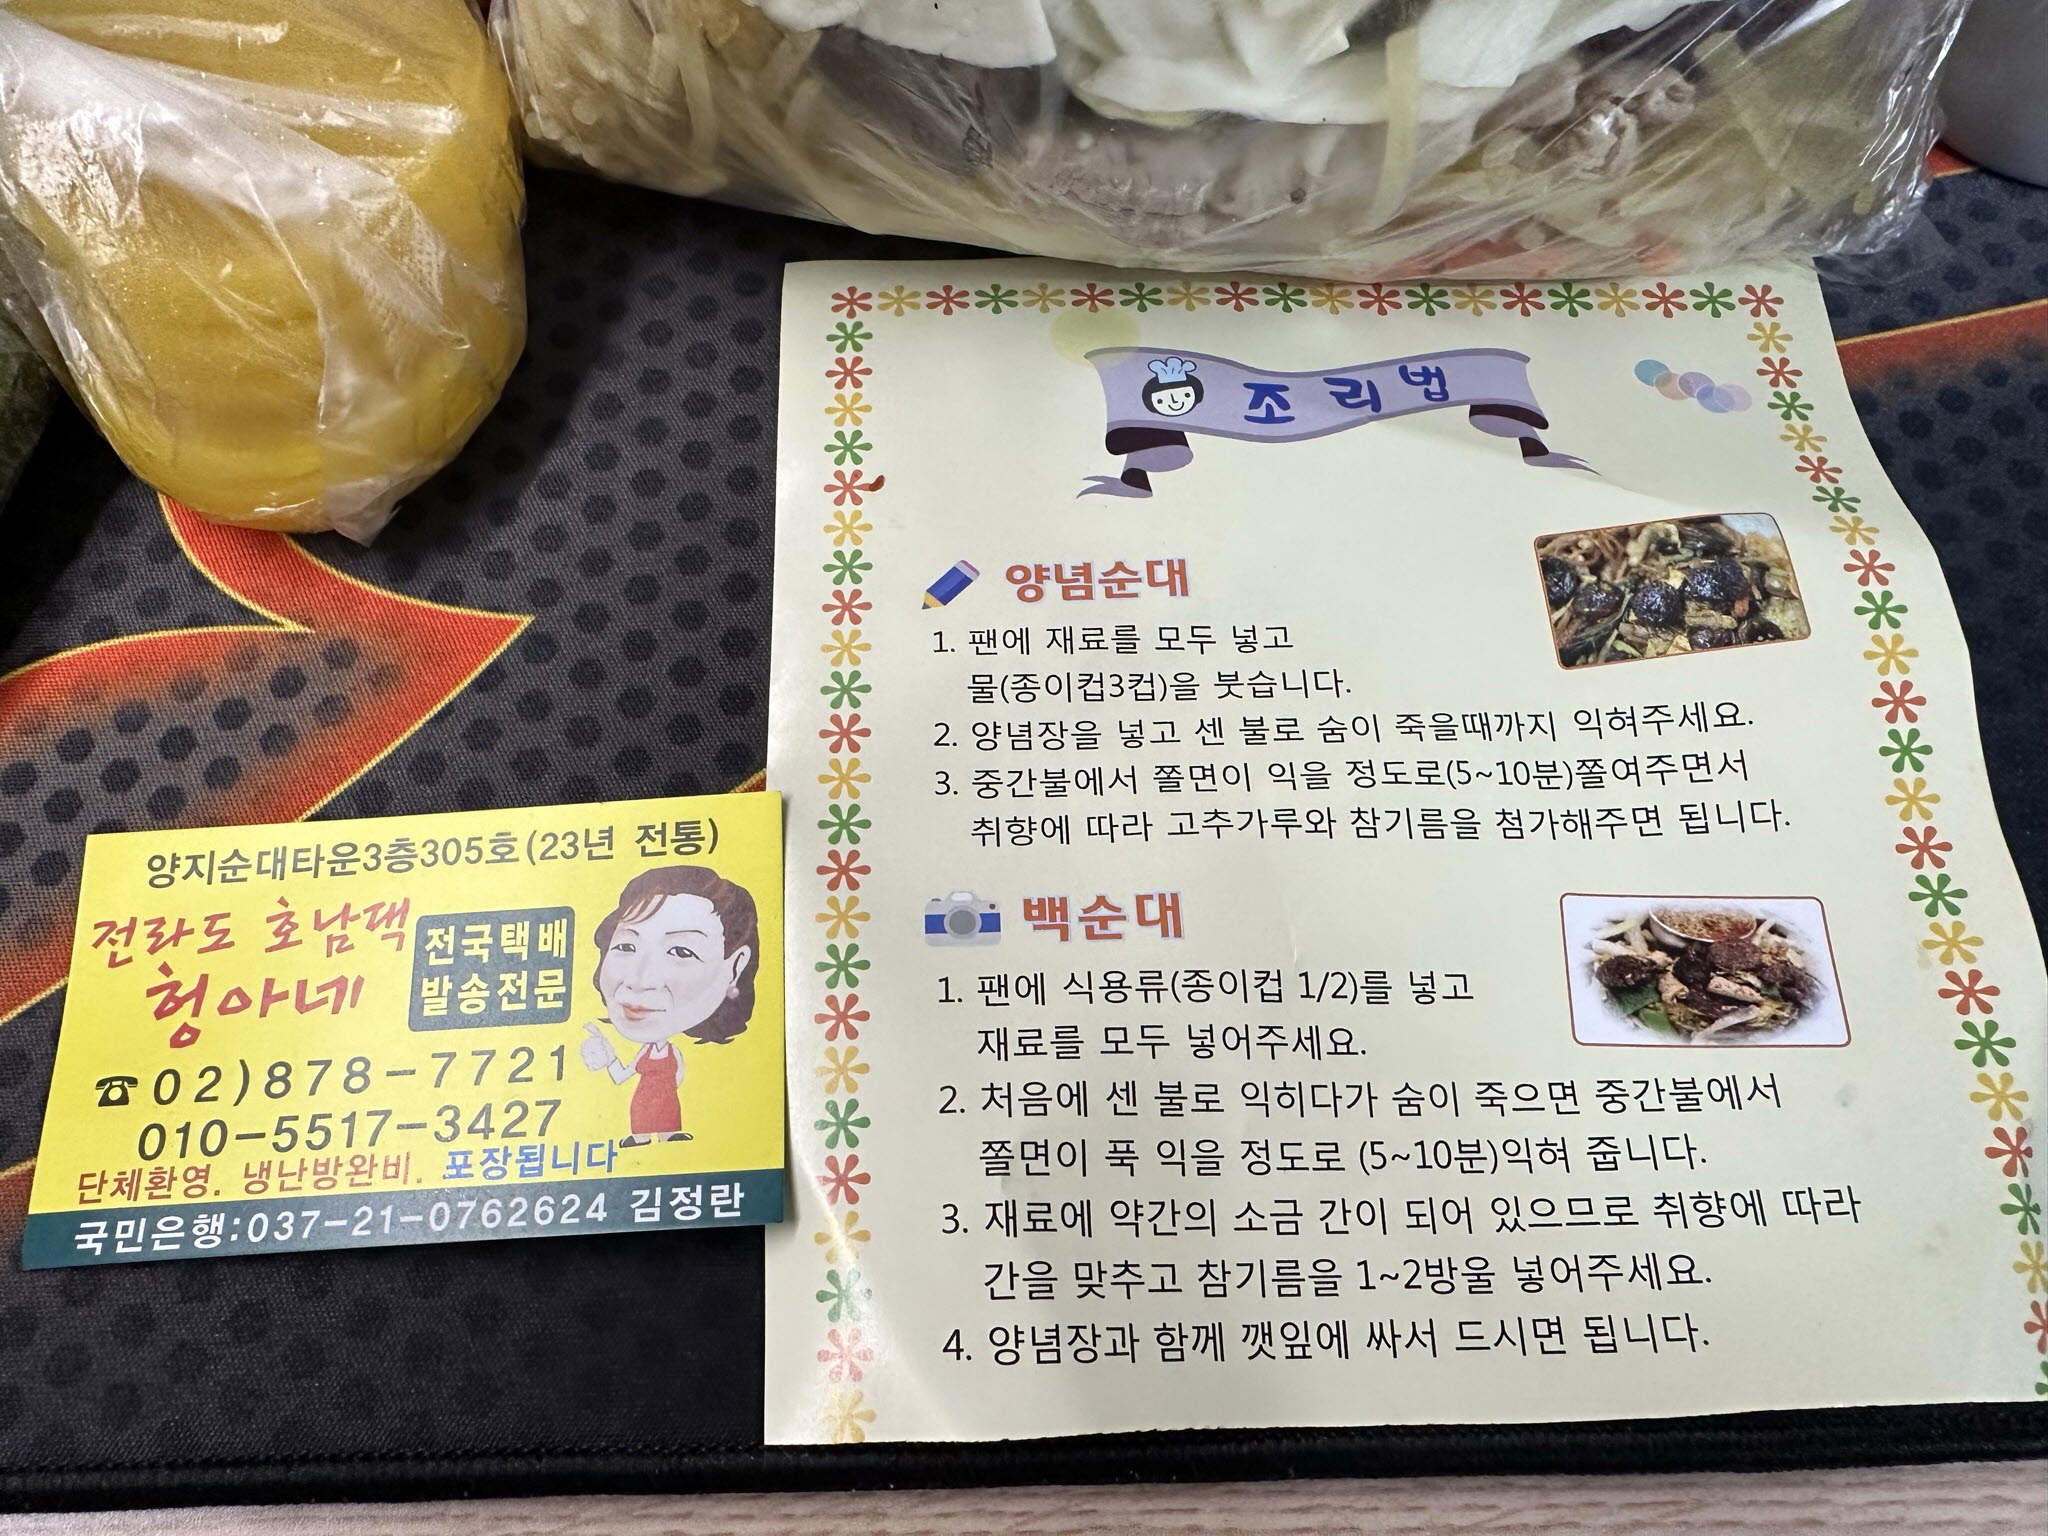 양지순대타운3층305호(23년 전통)
전라도 호남댁
형아네
전국택배
발송전문
☎02)878-7721
010-5517-3427
단체환영. 냉난방완비. 포장됩니다
국민은행:037-21-0762624 김정란
조리법
양념순대
1. 팬에 재료를 모두 넣고
물(종이컵3컵)을 붓습니다.
2. 양념장을 넣고 센 불로 숨이 죽을때까지 익혀주세요.
3. 중간불에서 쫄면이 익을 정도로(5~10분)쫄여주면서
취향에 따라 고추가루와 참기름을 첨가해주면 됩니다.
백순대
1. 팬에 식용류(종이컵 1/2)를 넣고
재료를 모두 넣어주세요.
2. 처음에 센 불로 익히다가 숨이 죽으면 중간불에서
쫄면이 푹 익을 정도로 (5~10분)익혀 줍니다.
3. 재료에 약간의 소금 간이 되어 있으므로 취향에 따라
간을 맞추고 참기름을 1~2방울 넣어주세요.
4. 양념장과 함께 깻잎에 싸서 드시면 됩니다.